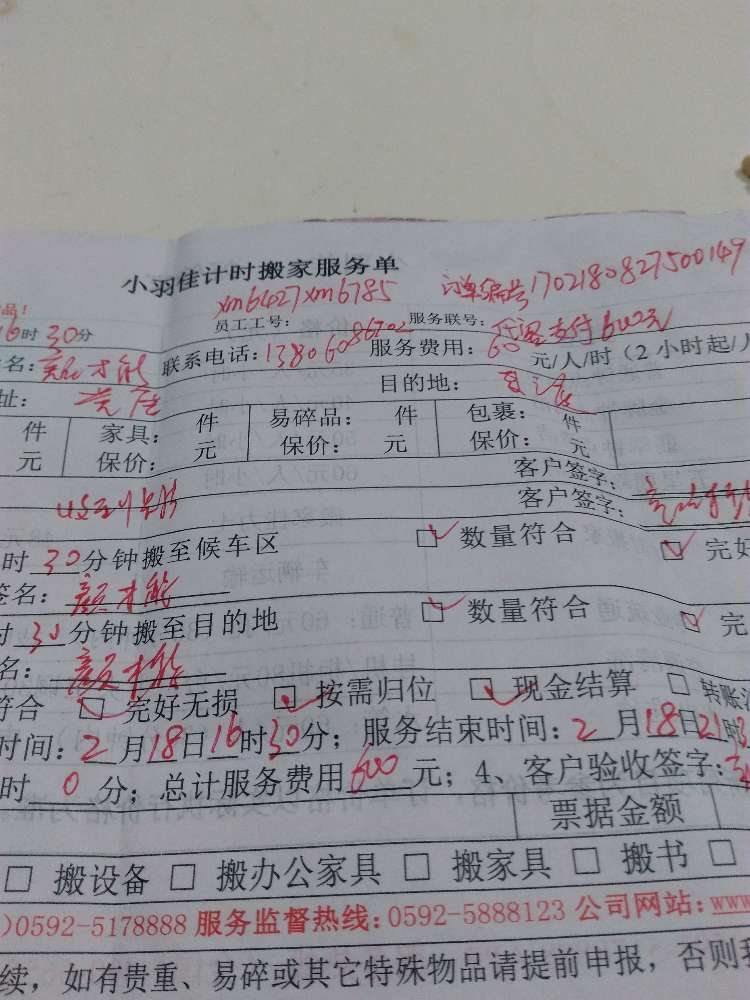 小羽佳计时搬家服务单
品!
xm6427xm6785 订单编号1702180827500149
员工工号: 服务联号:
16时30分
名: 联系电话: 服务费用:60元/人/时(2小时起/人
址: 目的地:
件 家具: 件 易碎品: 件 包裹: 件
元 保价: 元 保价: 元 保价: 元
客户签字:
客户签字:
时30分钟搬至候车区 数量符合 完好
签名:颜才能
时30分钟搬至目的地 数量符合 完
名:颜才能
符合 完好无损 按需归位 现金结算 转账
时间:2月18日16时30分;服务结束时间:2月18日21时3
时0分;总计服务费用600元;4、客户验收签字:
票据金额
搬设备 搬办公家具 搬家具 搬书
)0592-5178888 服务监督热线:0592-5888123 公司网站:www
续,如有贵重、易碎或其它特殊物品请提前申报,否则